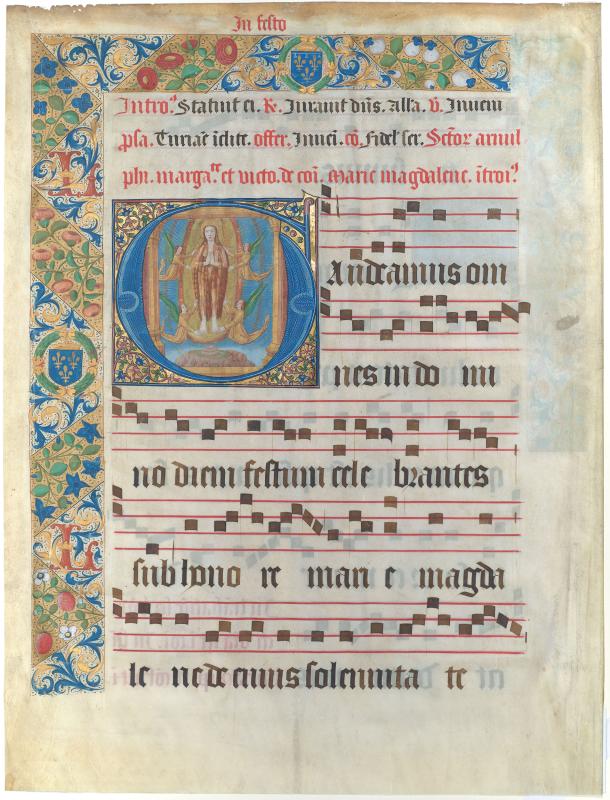 In festo
Intro. Statuit ei. R. Iuravit dñs. Alla. v. Inveni
psa. Offer. Inveni. cõ. Fidel' ser. Sctor
phi. marga. et victo. de coi. Marie magdalene. ĩtroi.
Gaudeamus om
nes in do mi
no diem festum cele brantes
sub hono re mari e magda
le ne de cuius solemnita te